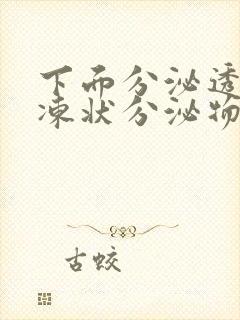 下面分泌透
凍状分泌物
古蛟